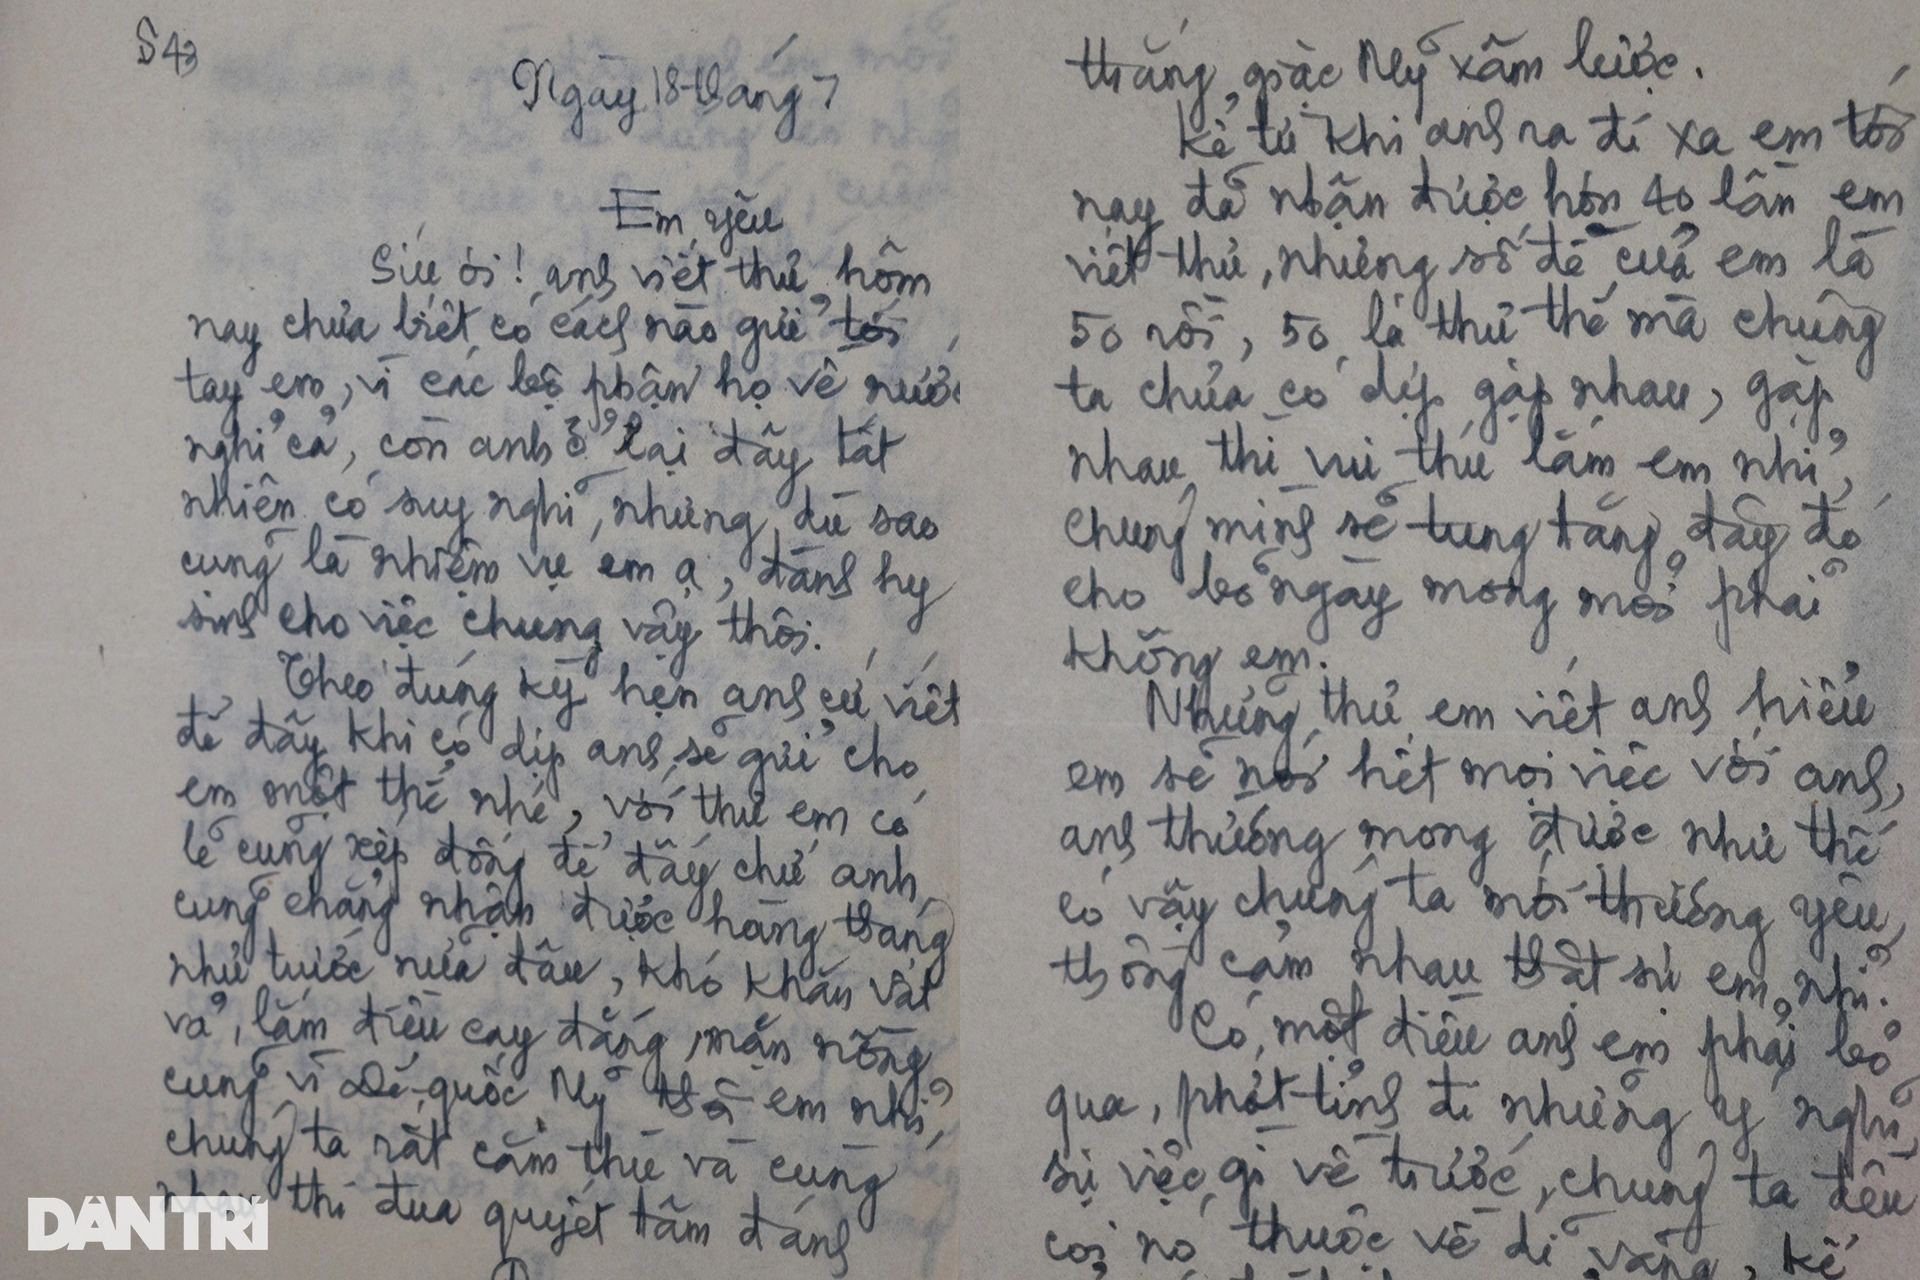 S43
Ngày 18 tháng 7
Em yêu
Sửu ơi! anh viết thư hôm
nay chưa biết có cách nào gửi tới
tay em, vì các bộ phận họ về nước
nghỉ cả, còn anh ở lại đây tất
nhiên có suy nghĩ, nhưng dù sao
cũng là nhiệm vụ em ạ, đành hy
sinh cho việc chung vậy thôi.
Theo đúng kỳ hẹn anh cứ viết
để đấy khi có dịp anh sẽ gửi cho
em một thể nhé, với thư em có
lẽ cũng xếp đống để đấy chứ anh
cũng chẳng nhận được hàng tháng
như trước nữa đâu, khó khăn vất
vả, lắm điều cay đắng, mặn nồng
cũng vì Đế-quốc Mỹ thôi em nhỉ,
chúng ta rất căm thù và cùng
nhau thi đua quyết tâm đánh
thắng giặc Mỹ xâm lược.
Kể từ khi anh ra đi xa em tới
nay đã nhận được hơn 40 lần em
viết thư, nhưng số đề của em là
50 rồi, 50 lá thư thế mà chúng
ta chưa có dịp gặp nhau, gặp
nhau thì vui thú lắm em nhỉ,
chúng mình sẽ tung tăng đây đó
cho bõ ngày mong mỏi phải
không em.
Những thư em viết anh hiểu
em sẽ nói hết mọi việc với anh,
anh thường mong được như thế
có vậy chúng ta mới thương yêu,
thông cảm nhau thật sự em nhỉ.
Có một điều anh em phải bỏ
qua, phớt tỉnh đi những ý nghĩ,
sự việc gì về trước, chúng ta đều
coi nó thuộc về dĩ vãng, kể
DÂN TRÍ